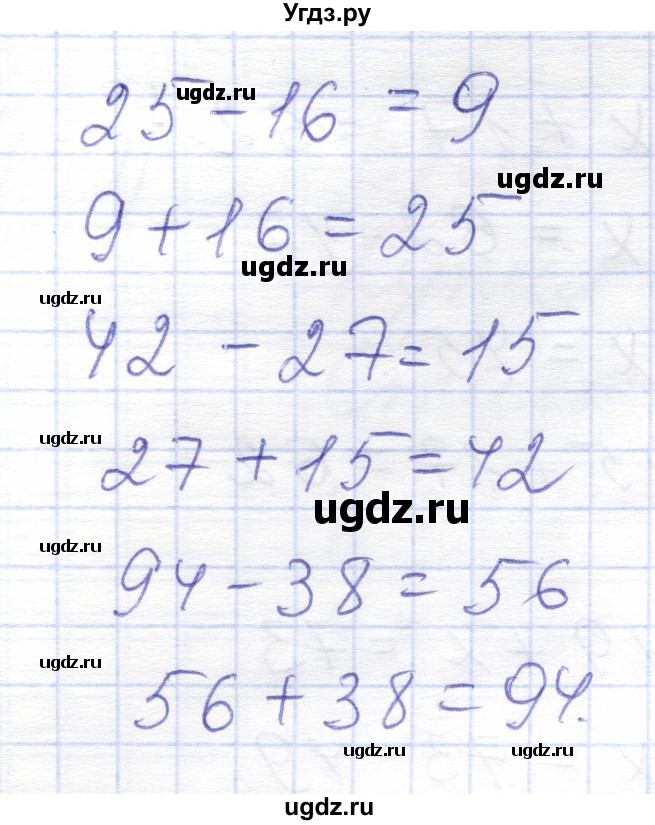 Угдз.ру
25 - 16 = 9
ugdz.ru
ugdz.ru
9 + 16 = 25
ugdz.ru
ugdz.ru
42 - 27 = 15
ugdz.ru
27 + 15 = 42
ugdz.ru
ugdz.ru
94 - 38 = 56
ugdz.ru
56 + 38 = 94.
ugdz.ru
ugdz.ru
ugdz.ru